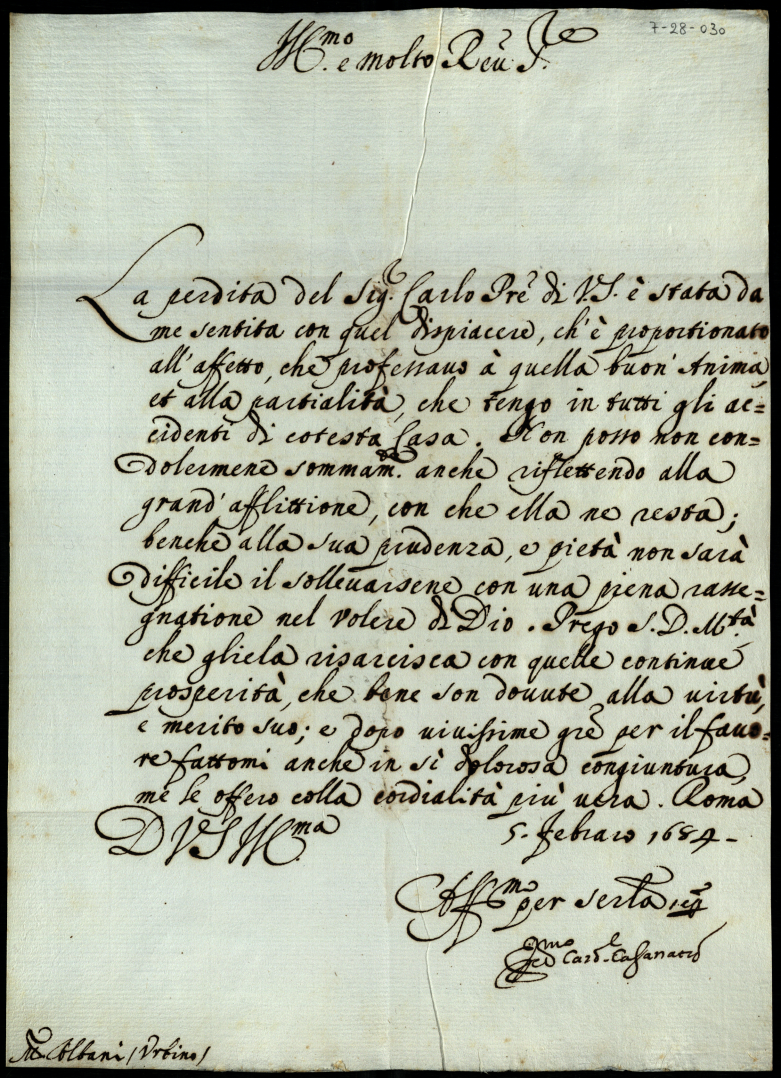 7-28-030
Ill.mo e molto Reu. S.re
La perdita del Sig.r Carlo Pre di V.S. è stata da
me sentita con quel dispiacere, ch'è proportionato
all'affetto, che professauo à quella buon' Anima,
et alla partialità, che tengo in tutti gli ac=
cidenti di cotesta Casa. Non posso non con=
dolermene sommam.te anche riflettendo alla
grand'afflittione, con che ella ne resta;
benche alla sua prudenza, e pietà non sarà
difficile il solleuarsene con una piena rasse=
gnatione nel volere di Dio. Prego S.D.M.tà
che gliela risarcisca con quelle continue
prosperità, che bene son douute alla uirtù,
e merito suo; e dopo uiuissime gre per il fauo=
re fattomi anche in sì dolorosa congiuntura,
me le offero colla cordialità più uera. Roma
5. Febraro 1684 -
D V S Ill.ma
Aff.mo per seruirla
Card. Casanatte
Albani (Urbino)